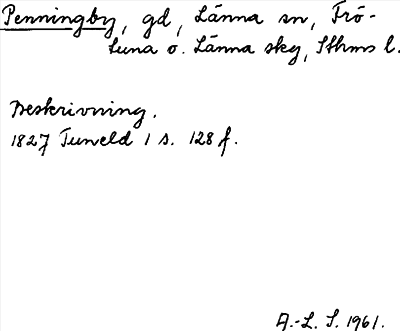 Penningby, gd, Länna sn, Frö-
tuna o. Länna skg, Sthms l.
Beskrivning.
1827 Tuneld 1 s. 128 f.
A.-L. S. 1961.